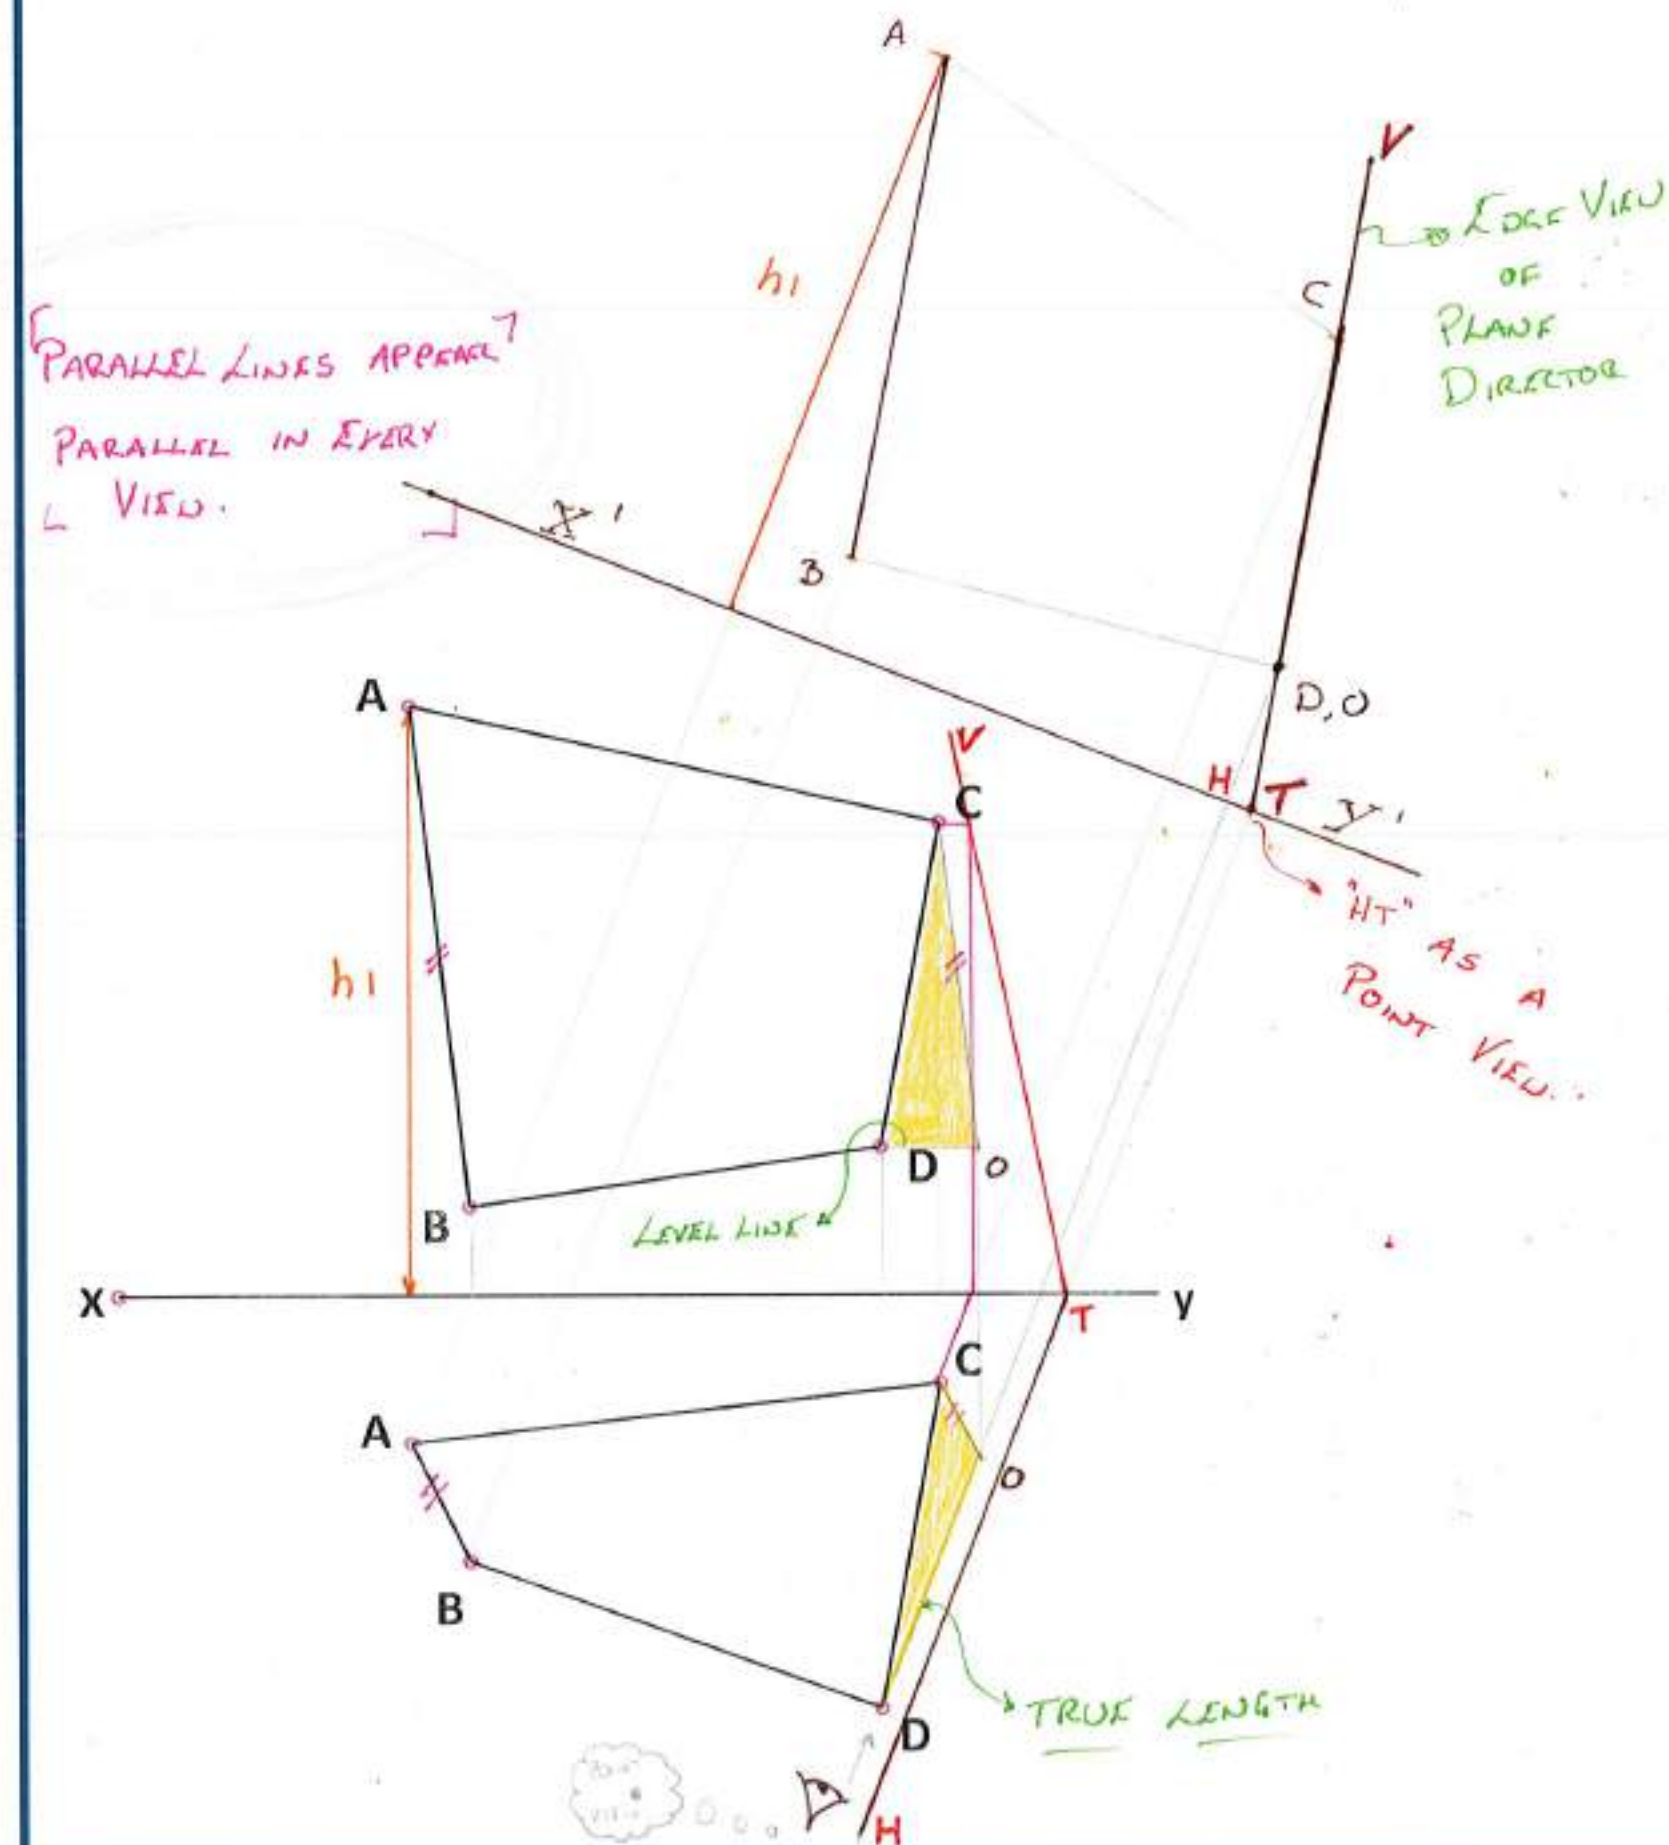 A
V
EDGE VIEW
OF
PLANE
DIRECTOR
C
h1
PARALLEL LINES APPEAR
PARALLEL IN EVERY
VIEW.
X'
B
D,O
H T Y'
"HT" AS A
POINT VIEW..
A
V
C
h1
D O
B
LEVEL LINE
X
y
T
C
A
O
B
TRUE LENGTH
D
POINT
VIEW
H